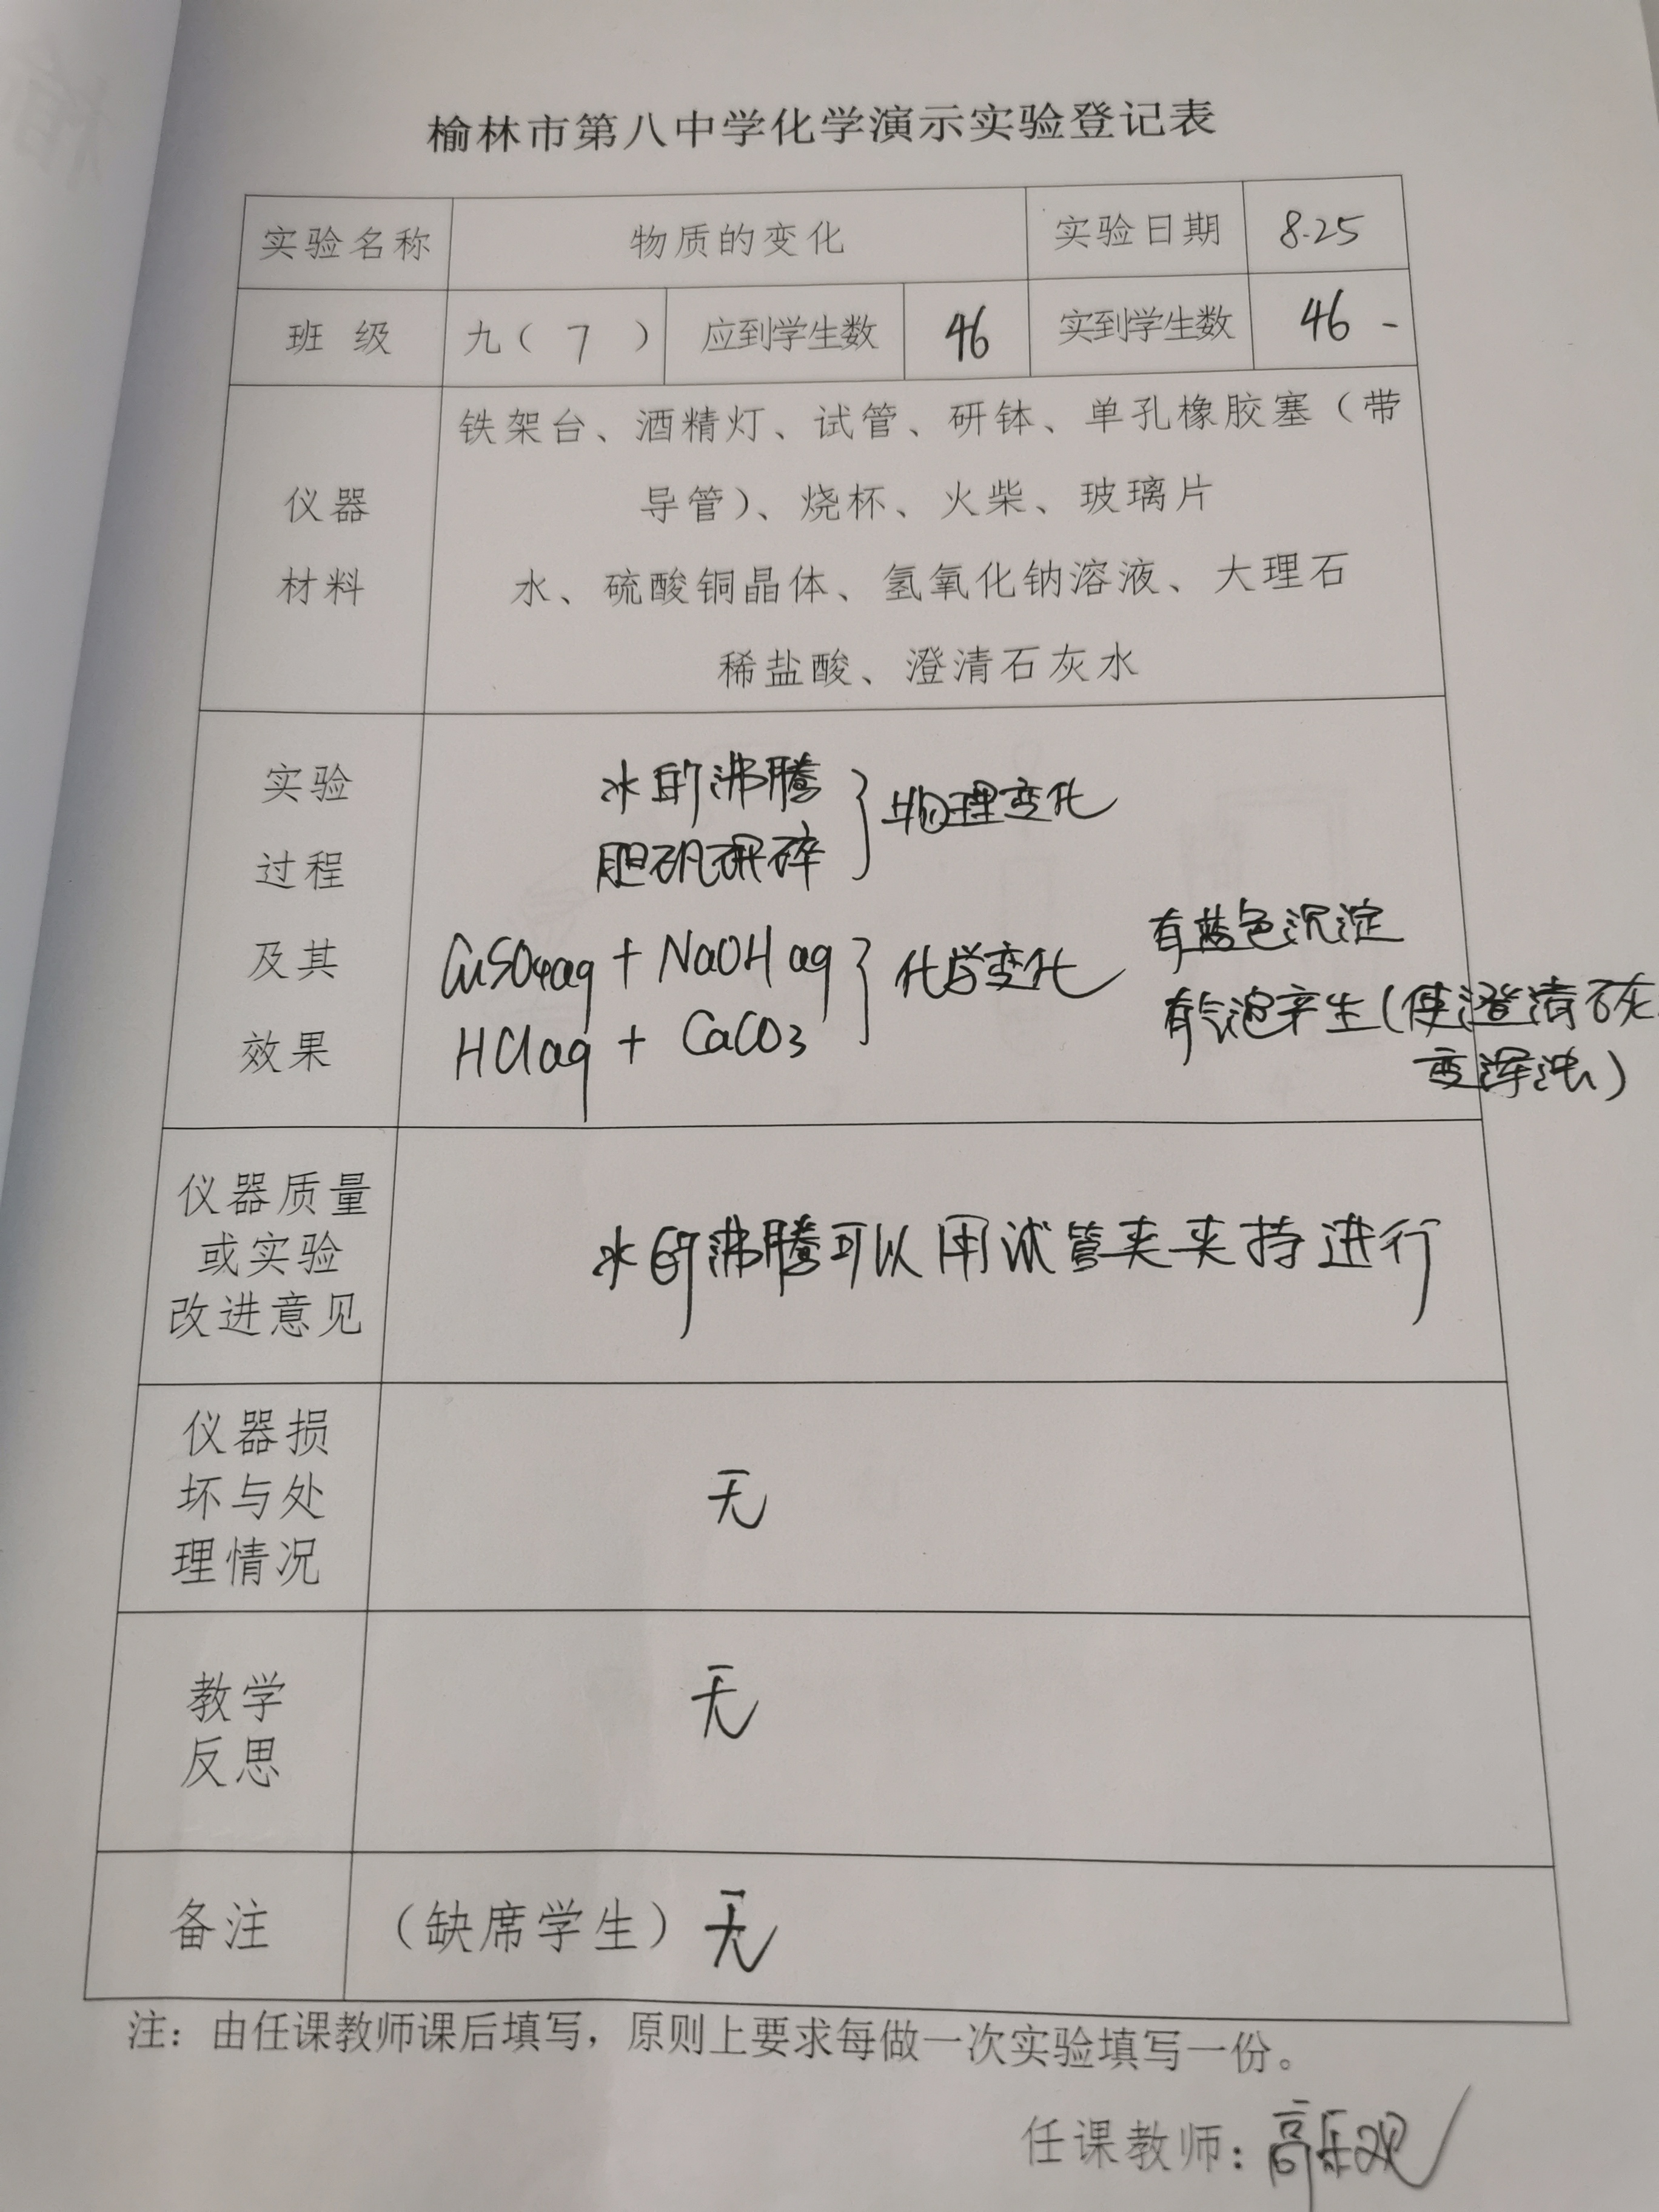 榆林市第八中学化学演示实验登记表
实验名称 物质的变化 实验日期 8.25
班 级 九( 7 ) 应到学生数 46 实到学生数 46 -
仪器
材料
铁架台、酒精灯、试管、研钵、单孔橡胶塞（带
导管）、烧杯、火柴、玻璃片
水、硫酸铜晶体、氢氧化钠溶液、大理石
稀盐酸、澄清石灰水
实验
过程
及其
效果
水的沸腾
胆矾研碎
} 物理变化
CuSO4aq + NaOH aq
HClaq + CaCO3
} 化学变化
有蓝色沉淀
有气泡产生(使澄清石灰
变浑浊)
仪器质量
或实验
改进意见
水的沸腾可以用试管夹夹持进行
仪器损
坏与处
理情况
无
教学
反思
无
备注 （缺席学生）无
注：由任课教师课后填写，原则上要求每做一次实验填写一份。
任课教师：高乐观